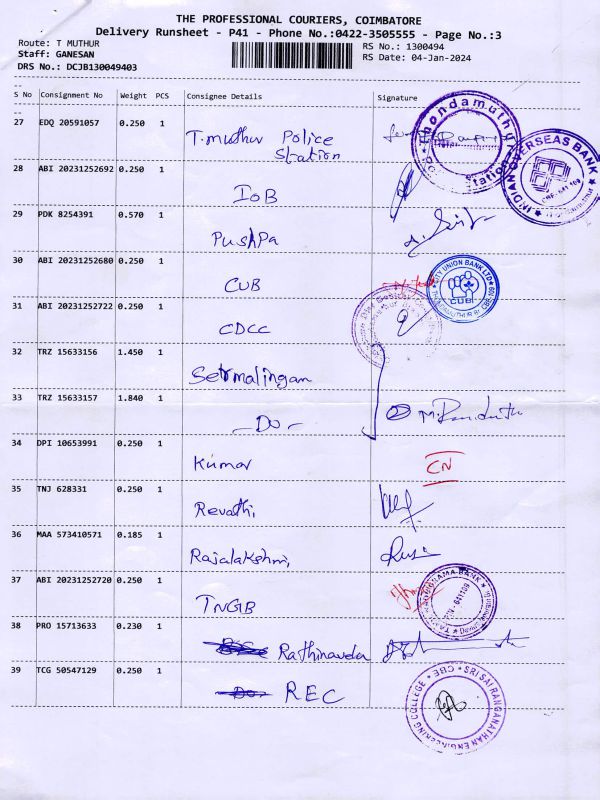 THE PROFESSIONAL COURIERS, COIMBATORE
Delivery Runsheet - P41 - Phone No.:0422-3505555 - Page No.:3
Route: T MUTHUR
RS No.: 1300494
Staff: GANESAN
RS Date: 04-Jan-2024
DRS No.: DCJB130049403
S No Consignment No Weight PCS Consignee Details Signature
27 EDQ 20591057 0.250 1 T.muthur Police
Station
28 ABI 20231252692 0.250 1 IOB
29 PDK 8254391 0.570 1 Pushpa
30 ABI 20231252680 0.250 1 CUB
31 ABI 20231252722 0.250 1 CDCC
32 TRZ 15633156 1.450 1
33 TRZ 15633157 1.840 1 -Do-
34 DPI 10653991 0.250 1 Kumar CN
35 TNJ 628331 0.250 1 Revathi
36 MAA 573410571 0.185 1 Rajalakshmi
37 ABI 20231252720 0.250 1 TNGB
38 PRO 15713633 0.230 1
39 TCG 50547129 0.250 1 REC
Thondamuthur
INDIAN OVERSEAS BANK
CITY UNION BANK LTD
CUB
SRI SAI RANGANATHAN ENGINEERING COLLEGE * CBE